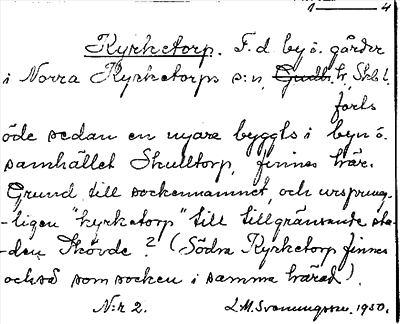 1 — 4
Kyrketorp. F.d. by ö. gårdar
i Norra Kyrketorps s:n, Gudh. h, Skb. l.
förls
öde sedan en nyare byggts i byn ö.
samhället Skultorp, finnes här.
Grund till sockennamnet, och ursprung-
-ligen "kyrketorp" till tillgränsande sta-
-den Skövde? (Södra Kyrketorp finnes
också som socken i samma härad).
N:r 2. L.M. Svenungsson. 1930.